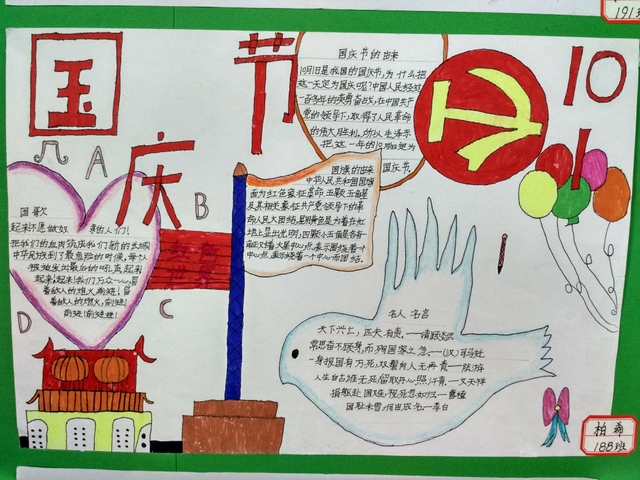 191班
国庆节
10
1
国庆节的由来
10月1日是我国的国庆节,为什么把
这一天定为国庆呢?中国人民经过
一百多年的英勇奋战,在中国共产
党的领导下,取得了人民革命
的伟大胜利。所以毛泽东
把这一年的10月1日定为
国庆节.
国旗的由来
中华人民共和国国旗
面为红色象征革命.
及其相关象征共产党领导下的革
命人民大团结,星用黄色是为着在红
地上显出光明,四颗小五角星各有一
角正对着大星中心点,表示围绕着一个
中心点 表示绕着一个中心而团结.
A
B
C
D
国歌
起来!不愿做奴 隶的人们!
把我们的血肉筑成我们新的长城
中华民族到了最危险的时候,每个人
被迫发出最后的吼声.起来
起来!起来!我们万众一心冒
着敌人的炮火前进!冒
着敌人的炮火,前进!
前进!前进进!
名人名言
天下兴亡,匹夫有责.——清顾炎武
常思奋不顾身,而殉国家之急.——(汉)司马迁
一身报国有万死,双鬓向人无再青——陆游
人生自古谁无死,留取丹心照汗青.——文天祥
捐躯赴国难,视死忽如归——曹植
国耻未雪,何由成名.——李白
柏希
188班